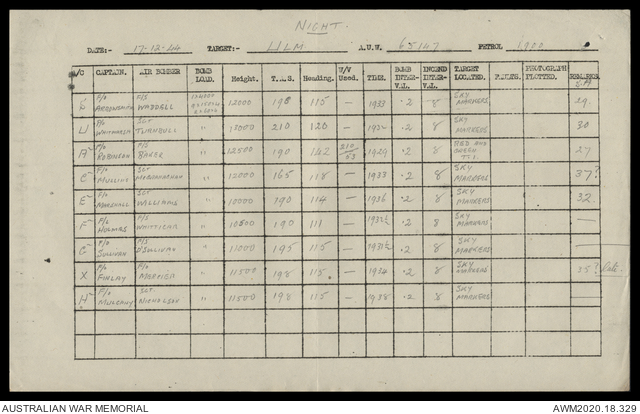 NIGHT.
DATE:- 17-12-44 TARGET:- ULM A.U.W. 65147 PETROL
A/C CAPTAIN. AIR BOMBER BOMB LOAD. Height. T.A.S. Heading. W/V Used. TIME. BOMB INTER-VAL. INCEND INTER-VAL. TARGET LOCATED. FAULTS. PHOTOGRAPH PLOTTED. REMARKS.
F/O F/S WADDELL 12000 115 — 1933 .2 8 SKY MARKERS 29.
U F/O SGT TURNBULL " 13000 210 120 — .2 8 SKY MARKERS 30
A F/O ROBINSON F/S BAKER " 12500 190 142 1929 .2 8 RED AND GREEN T.I. 27
C F/O MULLINS SGT " 12000 165 118 — 1933 .2 8 SKY MARKERS 37?
E F/O MARSHALL SGT WILLIAMS " 10000 190 114 — 1936 .2 8 SKY MARKERS 32.
F F/L HOLMES F/S WHITTICAR " 10500 190 111 — .2 8 SKY MARKERS —
G F/O SULLIVAN F/S O'SULLIVAN " 11000 195 115 — .2 8 SKY MARKERS
X F/O FINLAY F/O " 11500 198 115 — 1934 .2 8 SKY MARKERS 25? Late.
H F/O SGT NICHOLSON " 11500 198 115 — .2 8 SKY MARKERS
AUSTRALIAN WAR MEMORIAL AWM2020.18.329